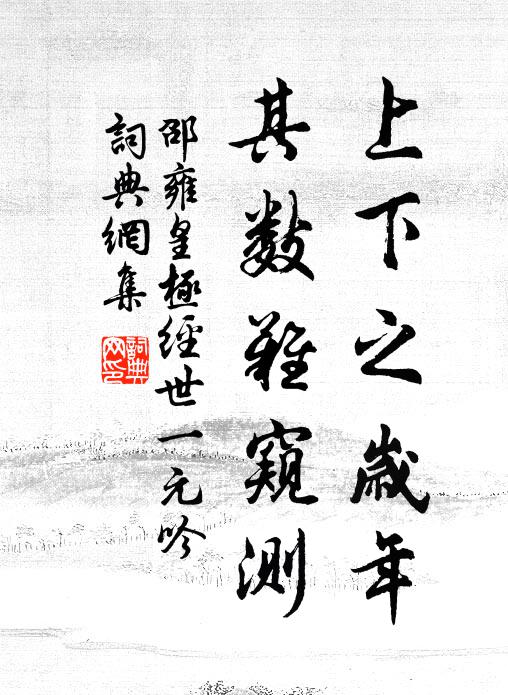 上下之歲年
其數難窺測
邵雍皇極經世一元吟
詞典網集
詞典網印